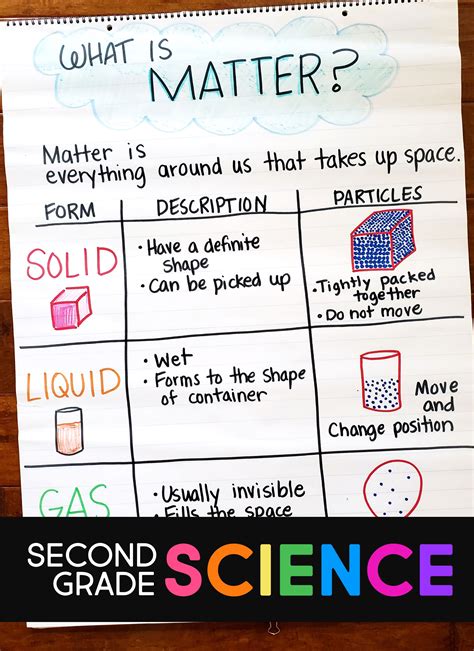 WHAT IS
MATTER?
Matter is
everything around us that takes up space.
FORM DESCRIPTION PARTICLES
SOLID
• Have a definite
shape
• Can be picked up
• Tightly packed
together
• Do not move
LIQUID
• Wet
• Forms to the shape
of container
Move
and
Change position
GAS
• Usually invisible
• Fills the space
SECOND
GRADE
SCIENCE